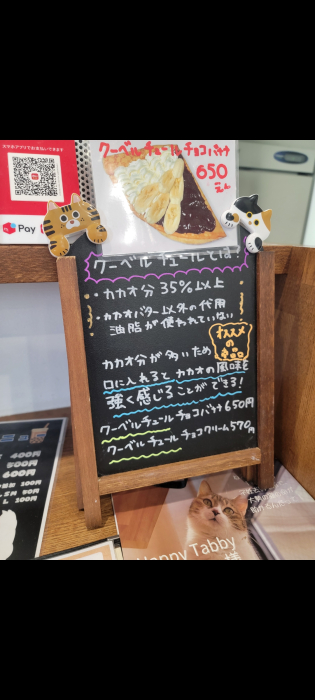 スマホアプリでお支払いできます
Pay
クーベルチュールチョコバナナ
650
えん
クーベルチュールとは?
・カカオ分35%以上
・カカオバター以外の代用
油脂が使われていない
オススメ
の
カカオ分が多いため
口に入れるとカカオの風味を
強く感じることができる!
クーベルチュールチョコバナナ650円
クーベルチュールチョコクリーム570円
400円
500円
600円
100円
100円
Happy Tabby
様